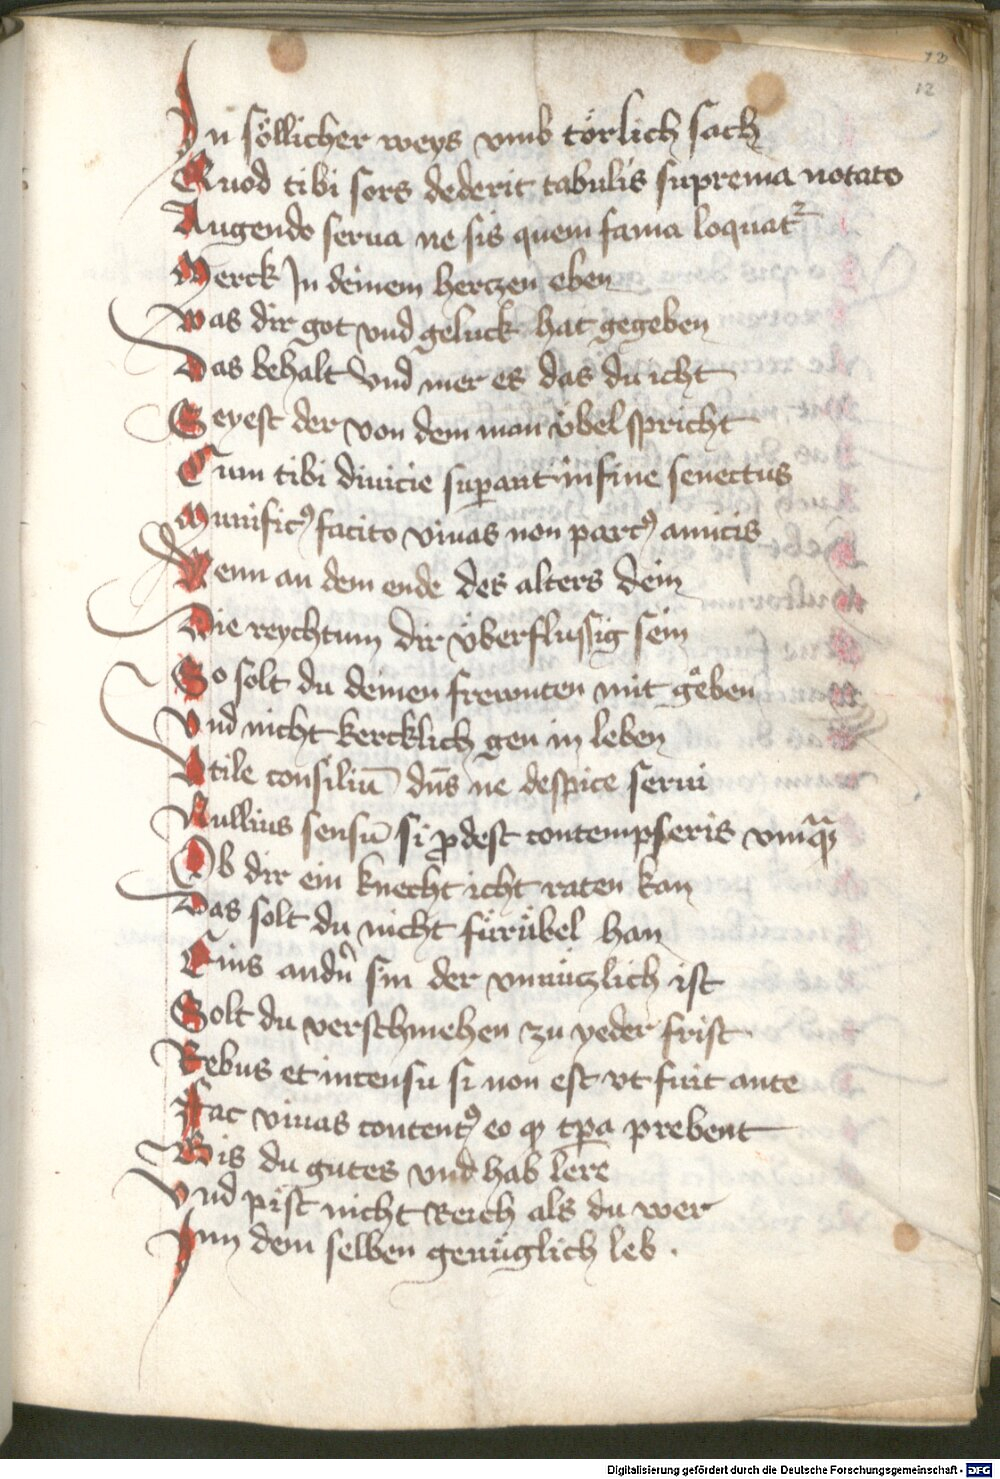 12
12
In söllicher weys vmb törlich sach
Quod tibi sors dederit tabulis suprema notato
Augendo serua ne sis quem fama loquat᷑
Merck In deinem herczen eben
Was dir got vnd gelück hat gegeben
Das behalt vnd mer es das du icht
Seyest der von dem man v̈bel spricht
Cum tibi diuicie suꝑant in fine senectus
Munificꝰ facito viuas non parcꝰ amicis
Wenn an dem ende des alters dein
Die reychtum dir v̈berflussig sein
So solt du deinen frewnten mit geben
Vnd nicht kercklich gen in leben
Vtile consiliū dn̄s ne despice serui
Nullius sensū si ꝓdest contempseris vmqᷓꝫ
Ob dir ein knecht icht raten kan
Das solt du nicht für übel han
Eins andn̄ sin der vnnüczlich ist
Solt du verschmehen zu yeder frist
Rebus et in censu si non est vt fuit ante
Fac viuas contentꝰ eo ꝙ tꝑa prebent
Bis du gutes vnd hab lere
Vnd pist nicht Reich als du wer
Inn dem selben genüglich leb .
Digitalisierung gefördert durch die Deutsche Forschungsgemeinschaft - DFG